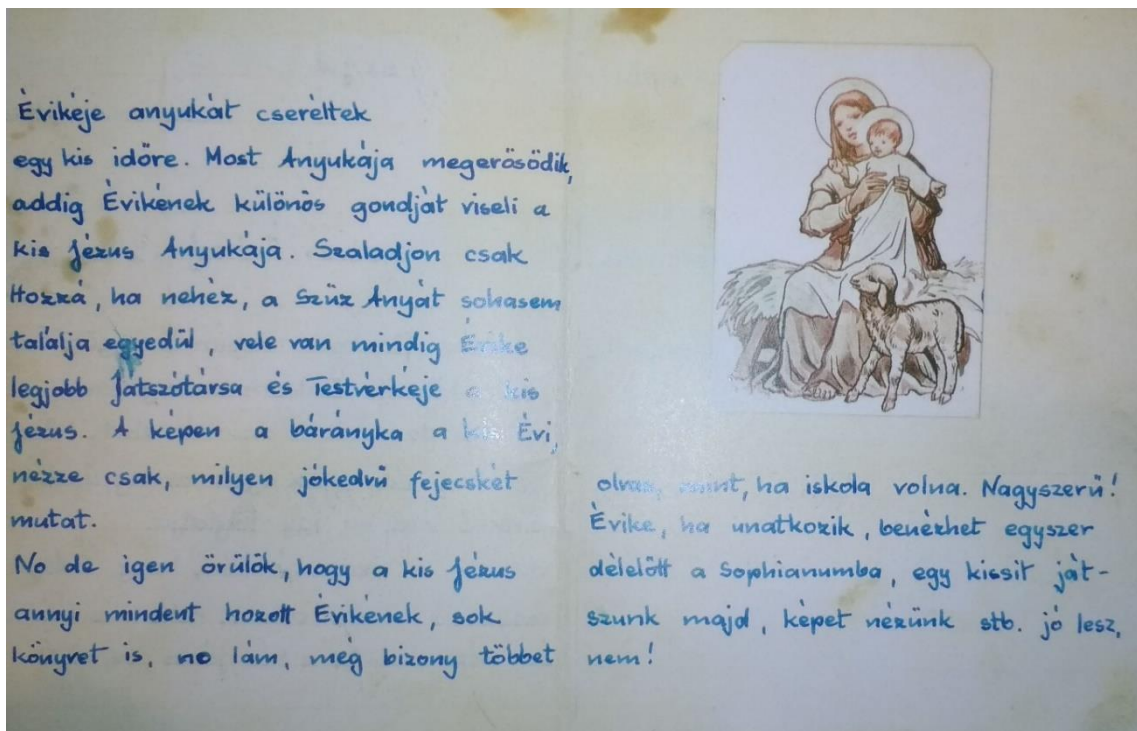 Évikéje anyukát cseréltek
egy kis időre. Most Anyukája megerősödik,
addig Évikének különös gondját viseli a
kis Jézus Anyukája. Szaladjon csak
Hozzá, ha nehéz, a Szűz Anyát sohasem
találja egyedül, vele van mindig Évike
legjobb Játszótársa és Testvérkéje a kis
Jézus. A képen a bárányka a kis Évi,
nézze csak, milyen jókedvű fejecskét
mutat.
No de igen örülök, hogy a kis Jézus
annyi mindent hozott Évikének, sok
könyvet is, no lám, még bizony többet
olvas, mint, ha iskola volna. Nagyszerű!
Évike, ha unatkozik, benézhet egyszer
délelőtt a Sophianumba, egy kissit ját-
szunk majd, képet nézünk stb. jó lesz,
nem!